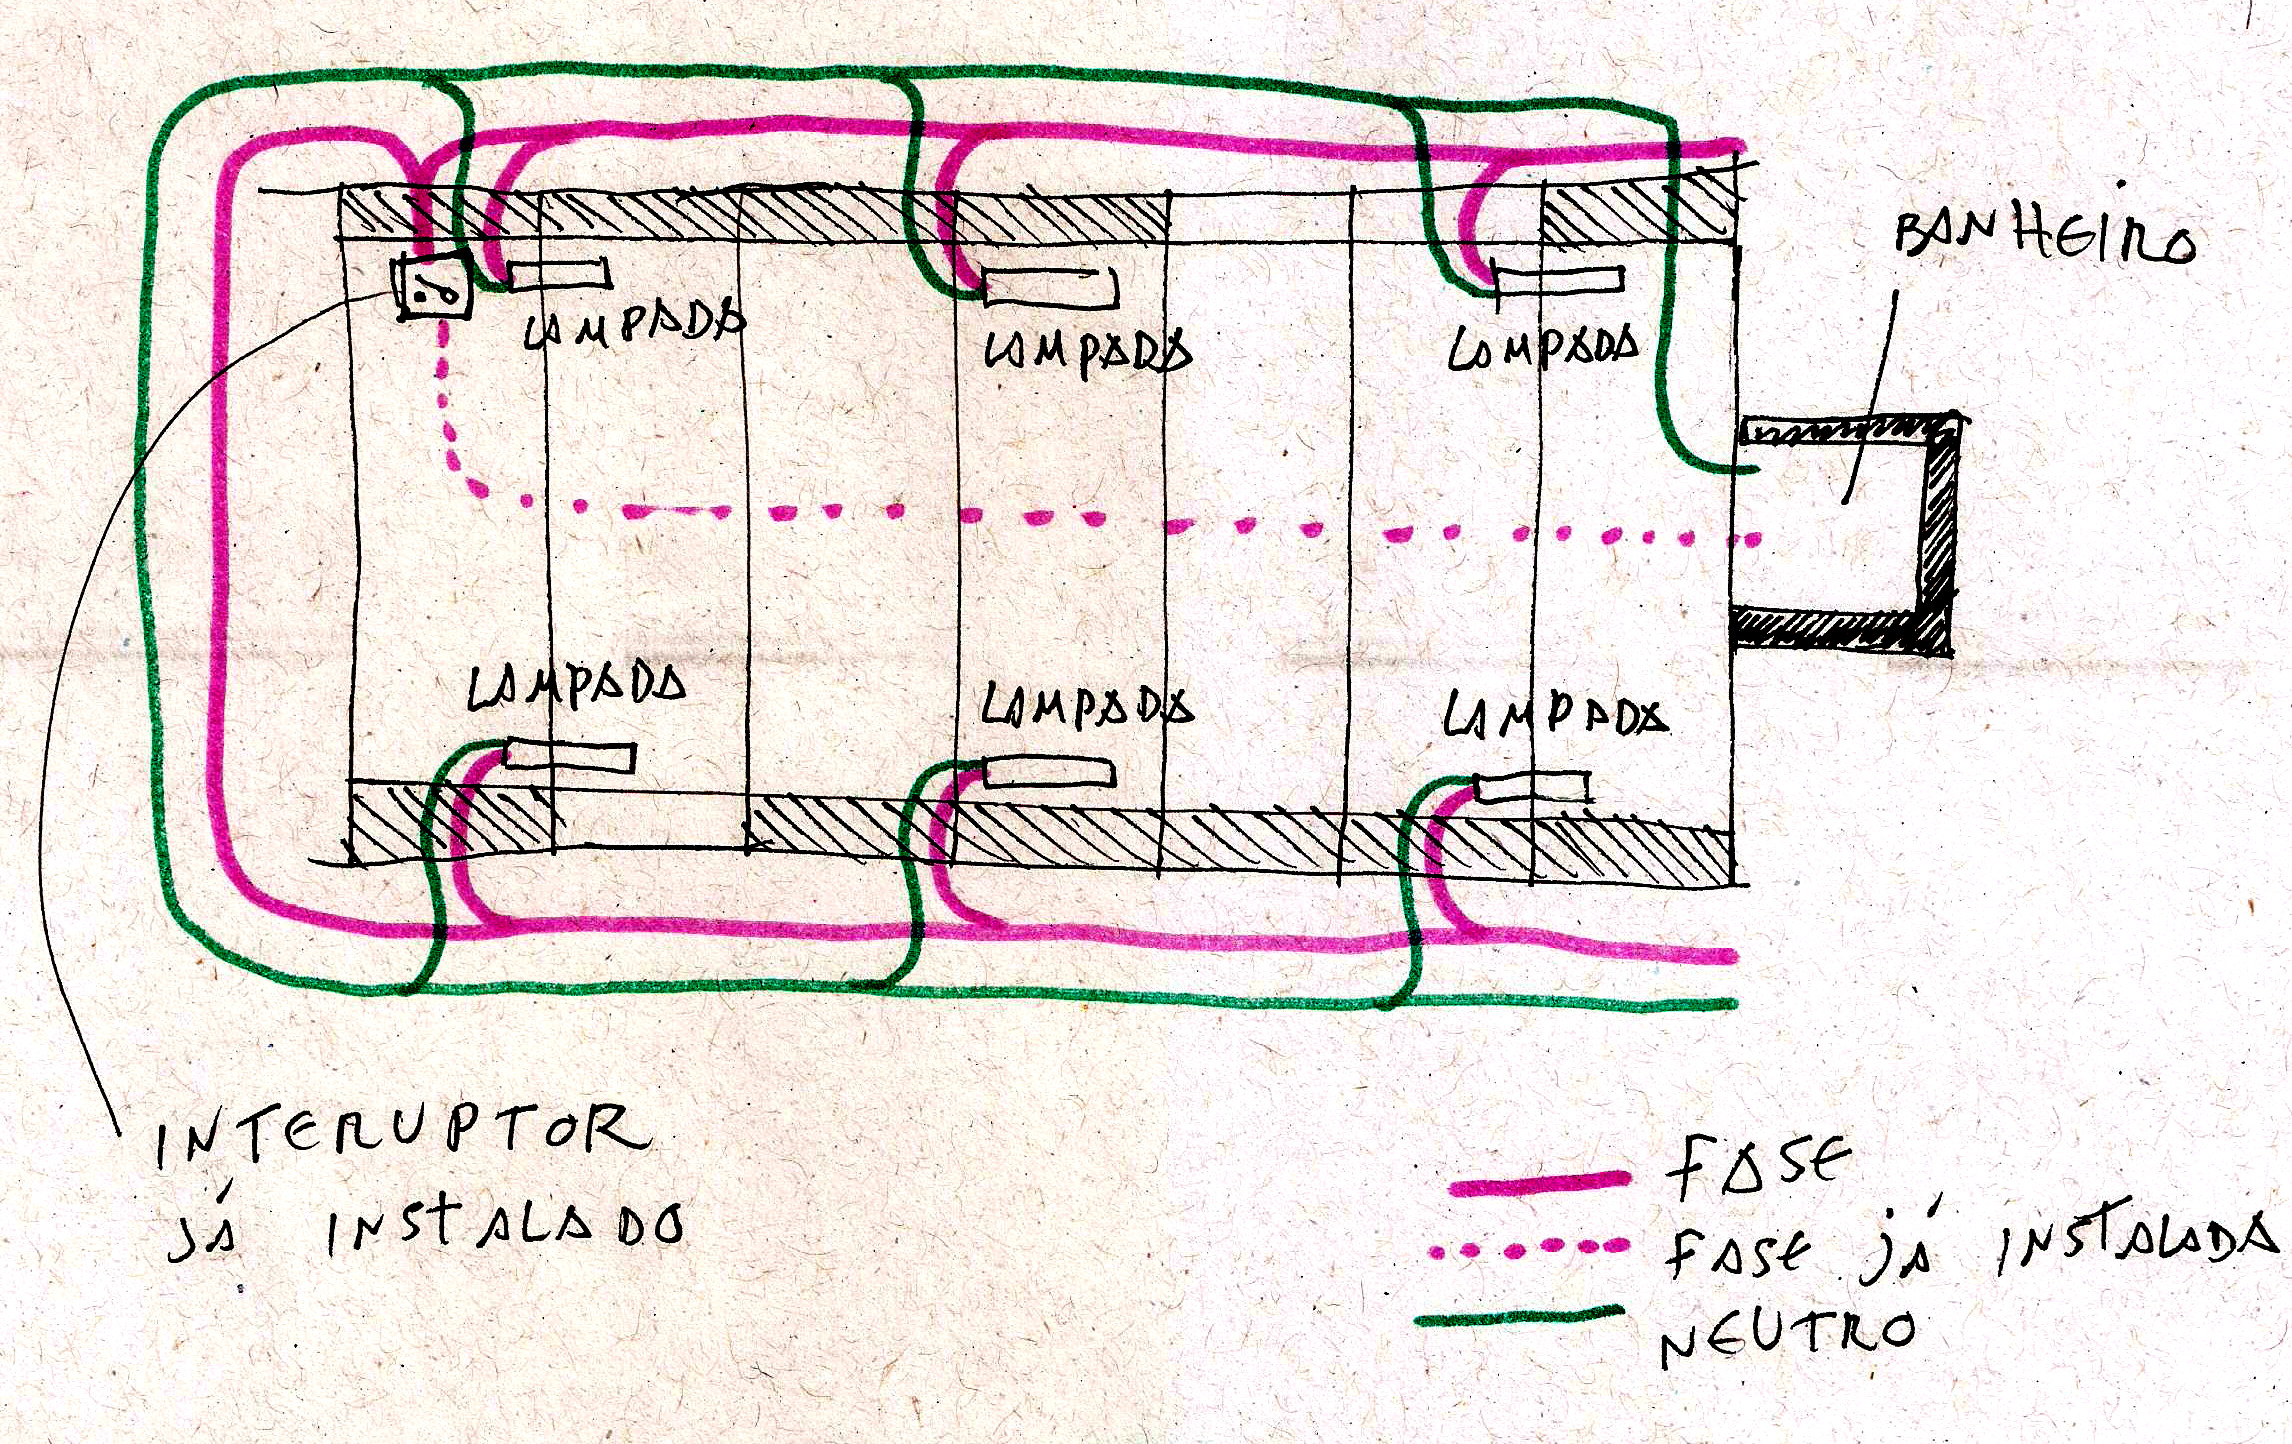 BANHEIRO
LAMPADA
LAMPADA
LAMPADA
LAMPADA
LAMPADA
LAMPADA
INTERUPTOR
JÁ INSTALADO
FASE
FASE JÁ INSTALADA
NEUTRO